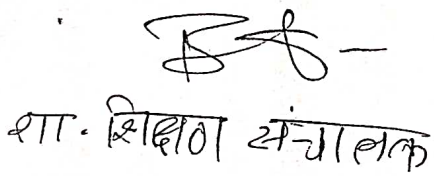 शा. शिक्षण संचालक